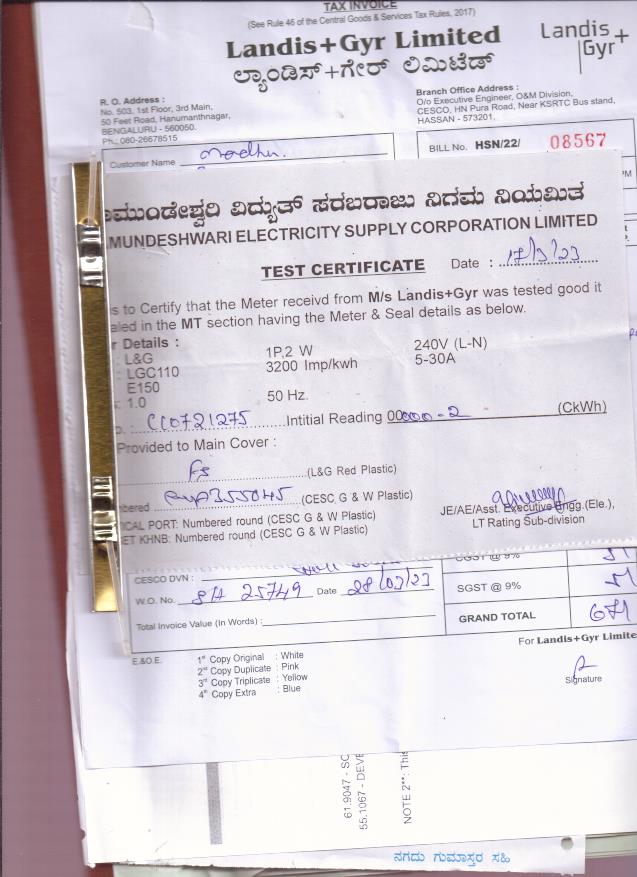 TAX INVOICE
(See Rule 46 of the Central Goods & Services Tax Rules, 2017)
Landis+Gyr Limited
ಲ್ಯಾಂಡಿಸ್+ಗೇರ್ ಲಿಮಿಟೆಡ್
Landis+
Gyr
R. O. Address :
No. 503, 1st Floor, 3rd Main,
50 Feet Road, Hanumanthnagar,
BENGALURU - 560050.
Ph.: 080-26678515
Branch Office Address :
O/o Executive Engineer, O&M Division,
CESCO, HN Pura Road, Near KSRTC Bus stand,
HASSAN - 573201.
Customer Name Madhu.
BILL No. HSN/22/ 08567
ಮುಂಡೇಶ್ವರಿ ವಿದ್ಯುತ್ ಸರಬರಾಜು ನಿಗಮ ನಿಯಮಿತ
MUNDESHWARI ELECTRICITY SUPPLY CORPORATION LIMITED
TEST CERTIFICATE Date : 17/3/23
s to Certify that the Meter receivd from M/s Landis+Gyr was tested good it
aled in the MT section having the Meter & Seal details as below.
r Details :
: L&G 1P,2 W 240V (L-N)
: LGC110 3200 Imp/kwh 5-30A
E150
: 1.0 50 Hz.
CC0721275 Intitial Reading 00000-2 (CkWh)
Provided to Main Cover :
(L&G Red Plastic)
bered (CESC G & W Plastic)
ICAL PORT: Numbered round (CESC G & W Plastic)
ET KHNB: Numbered round (CESC G & W Plastic)
JE/AE/Asst. Executive Engg.(Ele.),
LT Rating Sub-division
CESCO DVN :
CGST @ 9% 51
W.O. No. 25749 Date 28/03/23
SGST @ 9% 51
Total Invoice Value (In Words) :
GRAND TOTAL 671
For Landis+Gyr Limite
E.&O.E.
1st Copy Original : White
2nd Copy Duplicate : Pink
3rd Copy Triplicate : Yellow
4th Copy Extra : Blue
Signature
61.9047 - SC
55.1067 - DEVE
NOTE 2**: This
ನಗದು ಗುಮಾಸ್ತರ ಸಹಿ